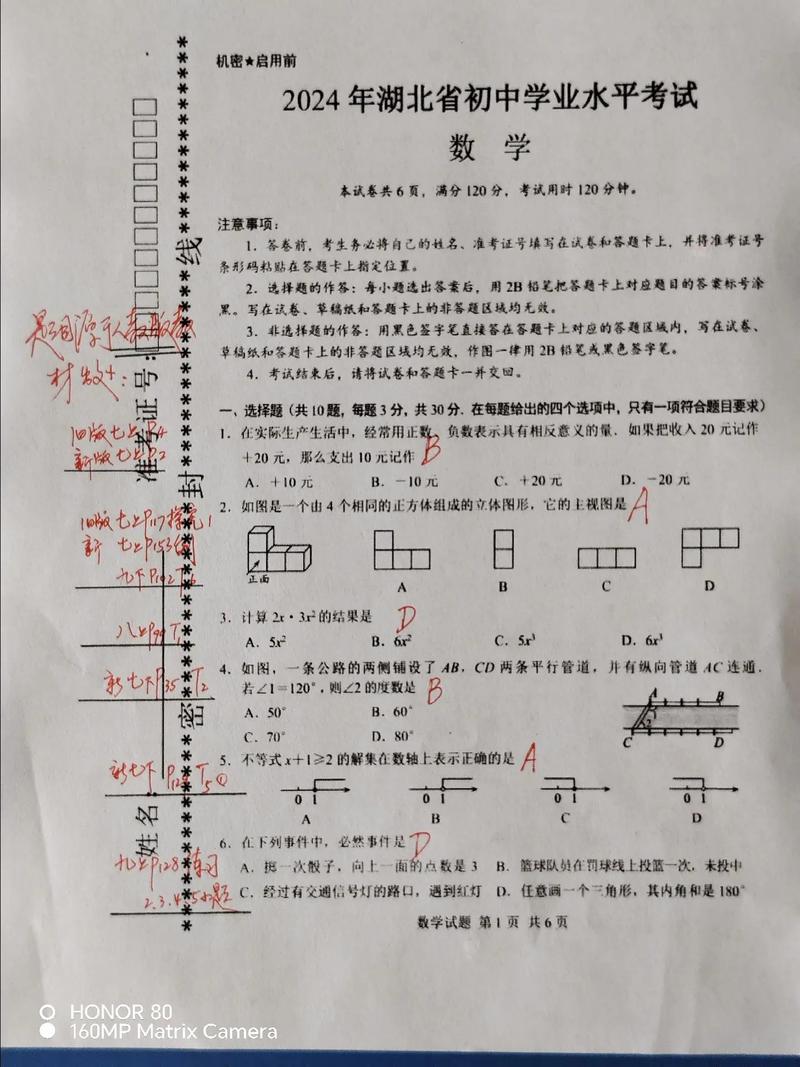 机密★启用前
2024 年湖北省初中学业水平考试
数 学
本试卷共 6 页，满分 120 分，考试用时 120 分钟。
注意事项：
1．答卷前，考生务必将自己的姓名、准考证号填写在试卷和答题卡上，并将准考证号
条形码粘贴在答题卡上指定位置。
2．选择题的作答：每小题选出答案后，用 2B 铅笔把答题卡上对应题目的答案标号涂
黑。写在试卷、草稿纸和答题卡上的非答题区域均无效。
3．非选择题的作答：用黑色签字笔直接答在答题卡上对应的答题区域内，写在试卷、
草稿纸和答题卡上的非答题区域均无效，作图一律用 2B 铅笔或黑色签字笔。
4．考试结束后，请将试卷和答题卡一并交回。
一、选择题（共 10 题，每题 3 分，共 30 分．在每题给出的四个选项中，只有一项符合题目要求）
1．在实际生产生活中，经常用正数、负数表示具有相反意义的量．如果把收入 20 元记作
＋20 元，那么支出 10 元记作 B
A．＋10 元 B．－10 元 C．＋20 元 D．－20 元
2．如图是一个由 4 个相同的正方体组成的立体图形，它的主视图是 A
正面
A B C D
3．计算 2x·3x² 的结果是 D
A．5x² B．6x² C．5x³ D．6x³
4．如图，一条公路的两侧铺设了 AB，CD 两条平行管道，并有纵向管道 AC 连通．
若∠1＝120°，则∠2 的度数是 B
A．50° B．60°
C．70° D．80°
A B
1
2
C D
5．不等式 x＋1≥2 的解集在数轴上表示正确的是 A
0 1 0 1 0 1 0 1
A B C D
6．在下列事件中，必然事件是 D
A．掷一次骰子，向上一面的点数是 3 B．篮球队员在罚球线上投篮一次，未投中
C．经过有交通信号灯的路口，遇到红灯 D．任意画一个三角形，其内角和是 180°
数学试题 第 1 页 共 6 页
线
封
密
准考证号:
姓名
旧版七上P4
新版七上P2
新七下P35 T2
九上P128练习
HONOR 80
160MP Matrix Camera